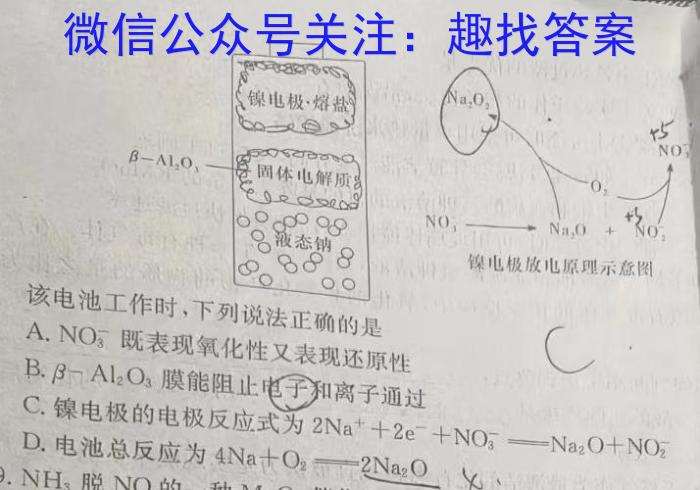 微信公众号关注：趣找答案
镍电极·熔盐
β-Al₂O₃
固体电解质
液态钠
Na₂O₂
+5
NO₃⁻
O₂
NO₃⁻
Na₂O + NO₂⁻
+3
镍电极放电原理示意图
该电池工作时,下列说法正确的是
C
A. NO₃⁻ 既表现氧化性又表现还原性
B. β-Al₂O₃ 膜能阻止电子和离子通过
C. 镍电极的电极反应式为 2Na⁺+2e⁻+NO₃⁻══Na₂O+NO₂⁻
D. 电池总反应为 4Na+O₂══2Na₂O
9. NH₃ 脱 NO 的一种